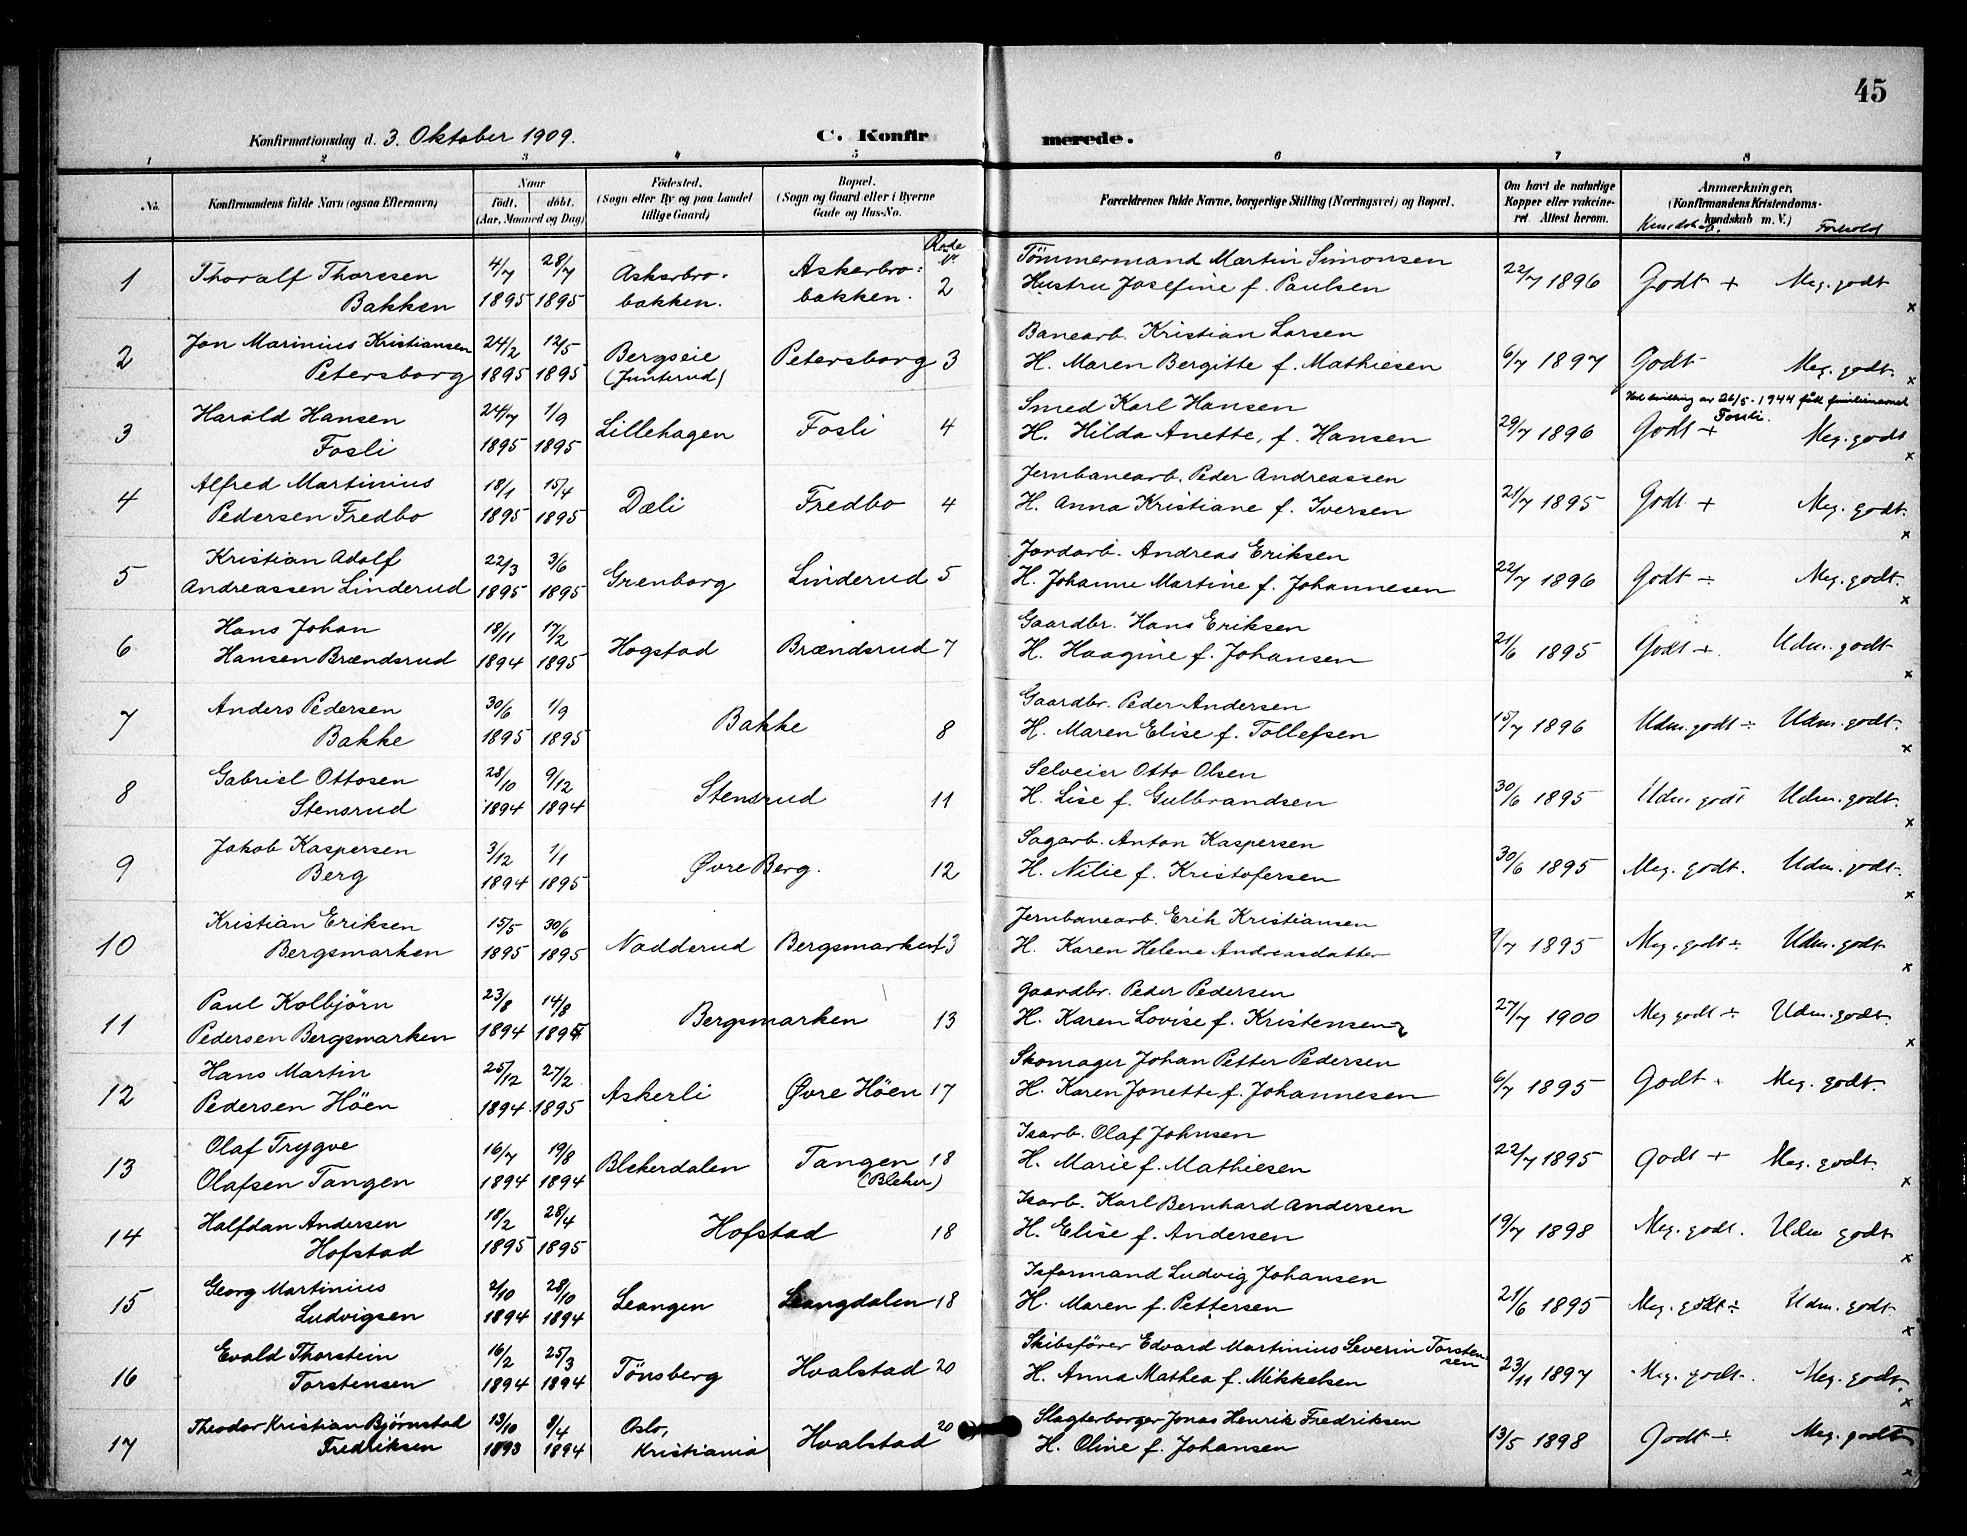 45
Konfirmationsdag d. 3. Oktober 1909. C. Konfirmerede.
1 2 3 4 5 6 7 8
No. Konfirmandens fulde Navn (ogsaa Efternavn) Naar født, døbt. (Aar, Maaned og Dag) Fødested. (Sogn eller By og paa Landet tillige Gaard) Bopæl. (Sogn og Gaard eller i Byerne Gade og Hus-No. Forældrenes fulde Navne, borgerlige Stilling (Næringsvei) og Bopæl. Om havt de naturlige Kopper eller vakcineret. Attest herom. Anmærkninger, (Konfirmandens Kristendomskundskab m. V.)
Rode Kundskab. Forhold
1 Thoralf Thoresen 4/7 28/7 Askerbro- Askerbro- Tømmermand Martin Simonsen 22/7 1896 Godt + Meg. godt
Bakken 1895 1895 bakken. bakken. 2 Hustru Josefine f. Paulsen x
2 Jon Marinius Kristiansen 24/2 12/5 Bergseie Petersborg 3 Banearb. Kristian Larsen 6/7 1897 Godt Meg. godt.
Petersborg 1895 1895 (Junterud) H. Maren Bergitte f. Mathiesen x
3 Harald Hansen 24/7 1/9 Lillehagen Fosli 4 Smed Karl Hansen 29/7 1896 Ved bevilling av 26/5-1944 fått familienavnet Fossli.
Fosli 1895 1895 H. Hilda Anette, f. Hansen Godt + Meg. godt x
4 Alfred Martinius 18/1 15/4 Dæli Fredbo 4 Jernbanearb. Peder Andreassen 21/7 1895 Godt + Meg. godt.
Pedersen Fredbo 1895 1895 H. Anna Kristiane f. Iversen x
5 Kristian Adolf 22/3 3/6 Grenborg Linderud 5 Jordarb. Andreas Eriksen 22/7 1896 Godt ÷ Meg. godt.
Andreassen Linderud 1895 1895 H. Johanne Martine f. Johannesen x
6 Hans Johan 18/11 17/2 Hogstad Brændsrud 7 Gaardbr. Hans Eriksen 21/6 1895 Godt ÷ Udm. godt
Hansen Brændsrud 1894 1895 H. Haagine f. Johansen x
7 Anders Pedersen 30/6 1/9 Bakke 8 Gaardbr. Peder Andersen 15/7 1896 Udm. godt ÷ Udm. godt.
Bakke 1895 1895 H. Maren Elise f. Tollefsen x
8 Gabriel Ottosen 28/10 9/12 Stensrud 11 Selveier Otto Olsen 30/6 1895 Udm godt Udm. godt.
Stensrud 1894 1894 H. Lise f. Gulbrandsen x
9 Jakob Kaspersen 3/12 1/1 Øvre Berg. 12 Sagarb. Anton Kaspersen 30/6 1895 Meg. godt. Udm. godt.
Berg 1894 1895 H. Nilie f. Kristofersen x
10 Kristian Eriksen 15/5 30/6 Nadderud Bergsmarken 13 Jernbanearb. Erik Kristiansen 9/7 1895 Meg. godt ÷ Udm. godt
Bergsmarken 1895 1895 H. Karen Helene Andreasdatter x
11 Paul Kolbjørn 23/8 14/8 Bergsmarken 13 Gaardbr. Peder Pedersen 27/7 1900 Meg godt ÷ Udm. godt.
Pedersen Bergsmarken 1894 1895 H. Karen Lovise f. Kristensen x
12 Hans Martin 25/12 27/2 Askerli Øvre Høen 17 Skomager Johan Petter Pedersen 6/7 1895 Godt + Meg. godt.
Pedersen Høen 1894 1895 H. Karen Jonette f. Johannesen
13 Olaf Trygve 16/7 19/8 Blekerdalen Tangen 18 Isarb. Olaf Johnsen 22/7 1895 Godt + Meg. godt
Olafsen Tangen 1894 1894 (Bleker) H. Marie f. Mathiesen x
14 Halfdan Andersen 18/2 28/4 Hofstad 18 Isarb. Karl Bernhard Andersen 19/7 1898 Meg. godt. Udm godt
Hofstad 1895 1895 H. Elise f. Andersen x
15 Georg Martinius 2/10 28/10 Leangen Leangdalen 18 Isformand Ludvig Johansen 21/6 1895 Meg. godt ÷ Udm. godt.
Ludvigsen 1894 1894 H. Maren f. Pettersen x
16 Evald Thorstein 16/2 25/3 Tønsberg Hvalstad 20 Skibsfører Edvard Martinius Severin Torstensen 23/11 1897 Meg. godt. Meg. godt.
Torstensen 1894 1894 H. Anna Mathea f. Mikkelsen x
17 Theodor Kristian Bjørnstad 13/10 8/4 Oslo, Hvalstad 20 Slagterborger Jonas Henrik Fredriksen 13/5 1898 Godt ÷ Meg. godt
Fredriksen 1893 1894 Kristiania H. Oline f. Johansen x